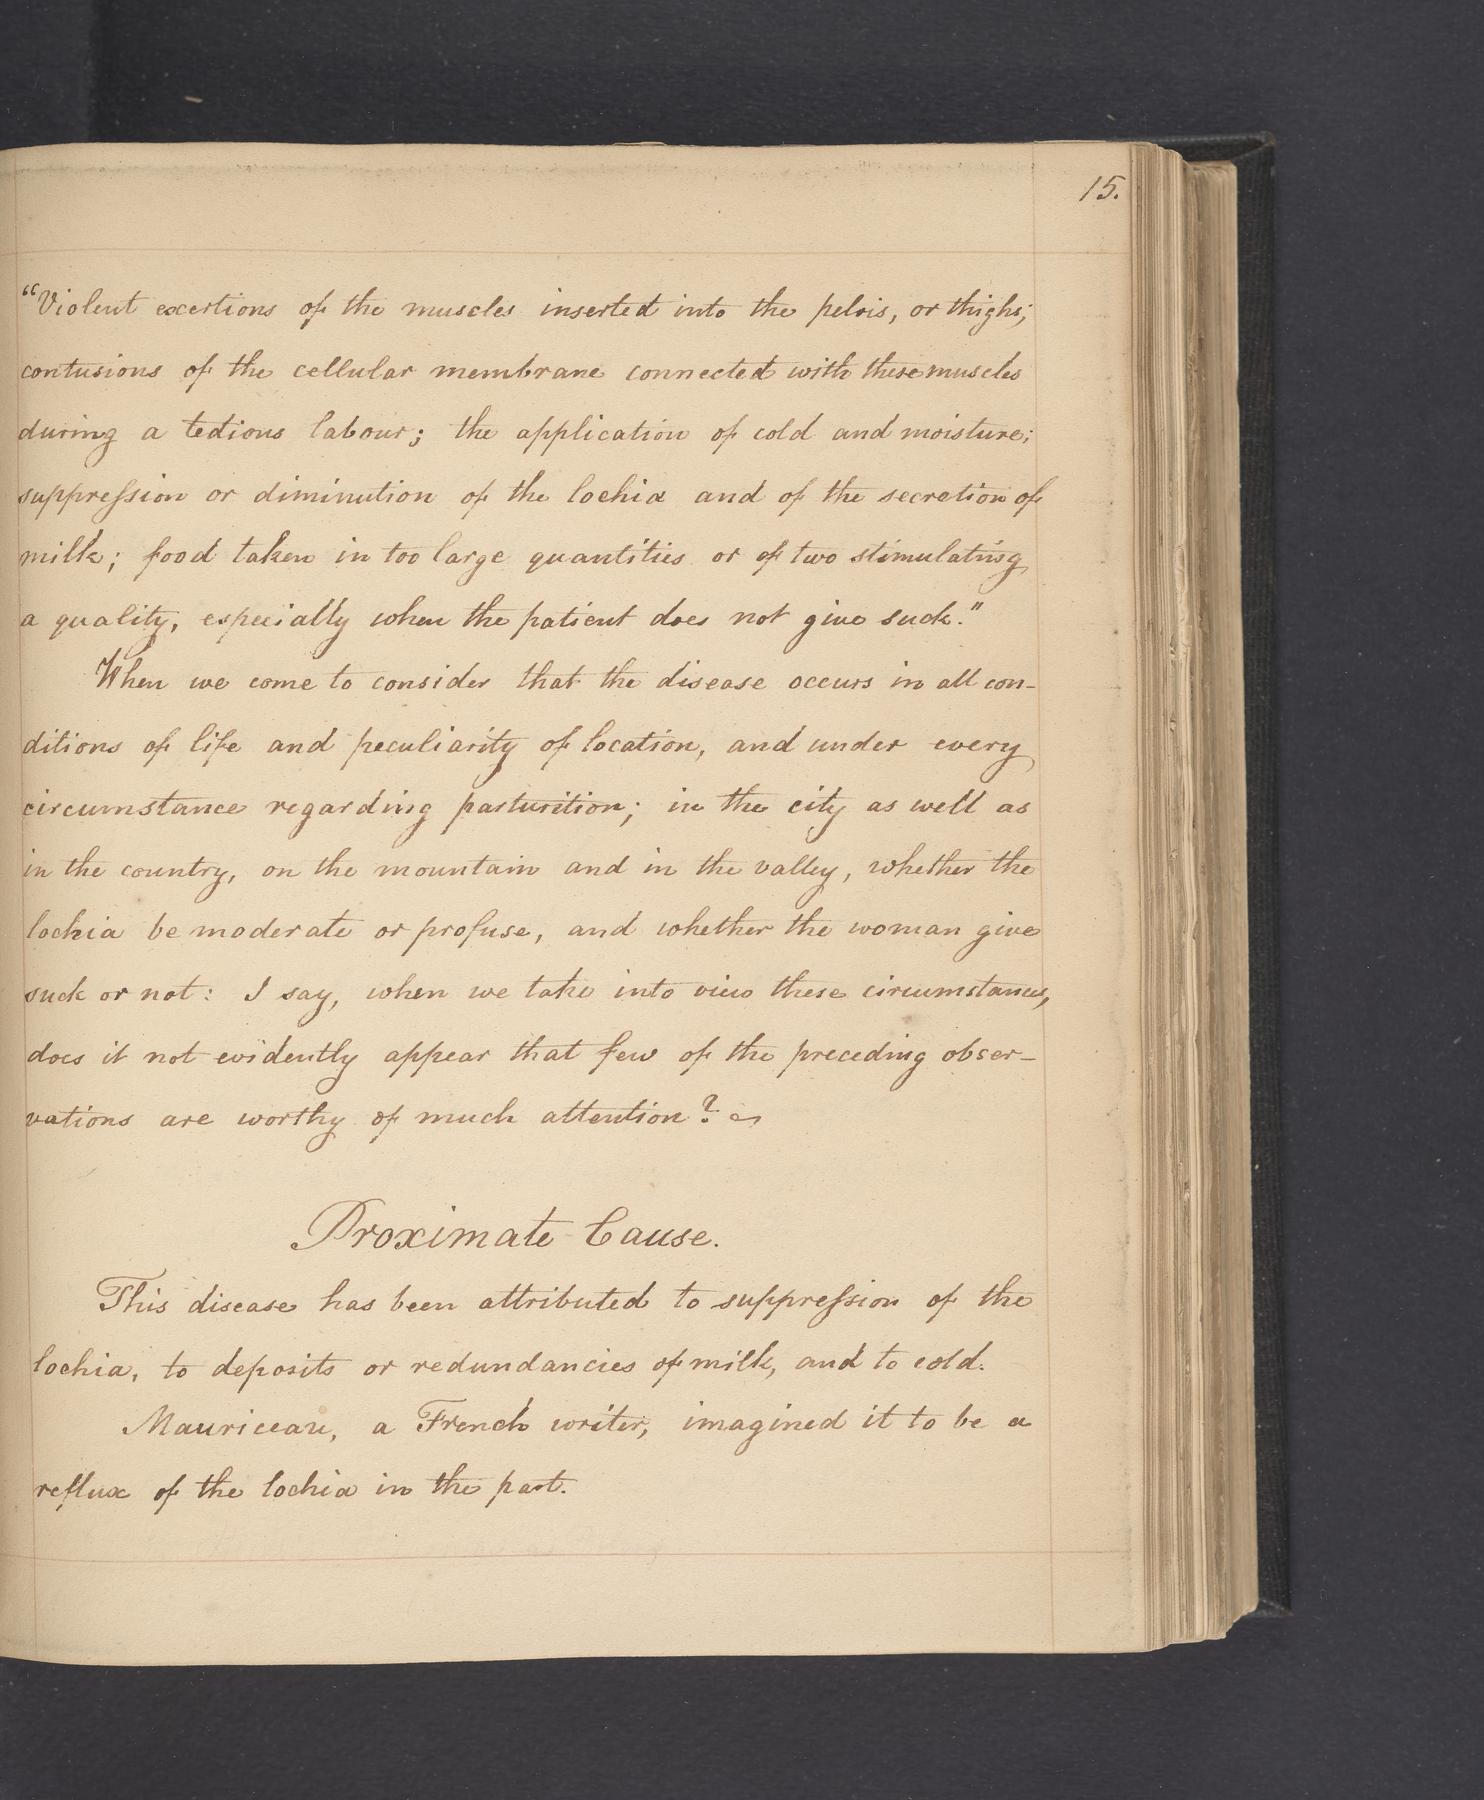 15.
“Violent exertions of the muscles inserted into the pelvis, or thighs;
contusions of the cellular membrane connected with these muscles
during a tedious labour; the application of cold and moisture;
suppreſsion or diminution of the lochia and of the secretion of
milk; food taken in too large quantities or of two stimulating
a quality, especially when the patient does not give suck.”
When we come to consider that the disease occurs in all con-
ditions of life and peculiarity of location, and under every
circumstance regarding parturition; in the city as well as
in the country, on the mountain and in the valley, whether the
lochia be moderate or profuse, and whether the woman give
suck or not: I say, when we take into view these circumstances,
does it not evidently appear that few of the preceding obser-
vations are worthy of much attention?
Proximate Cause.
This disease has been attributed to suppreſsion of the
lochia, to deposits or redundancies of milk, and to cold.
Mauriceau, a French writer, imagined it to be a
reflux of the lochia in the part.